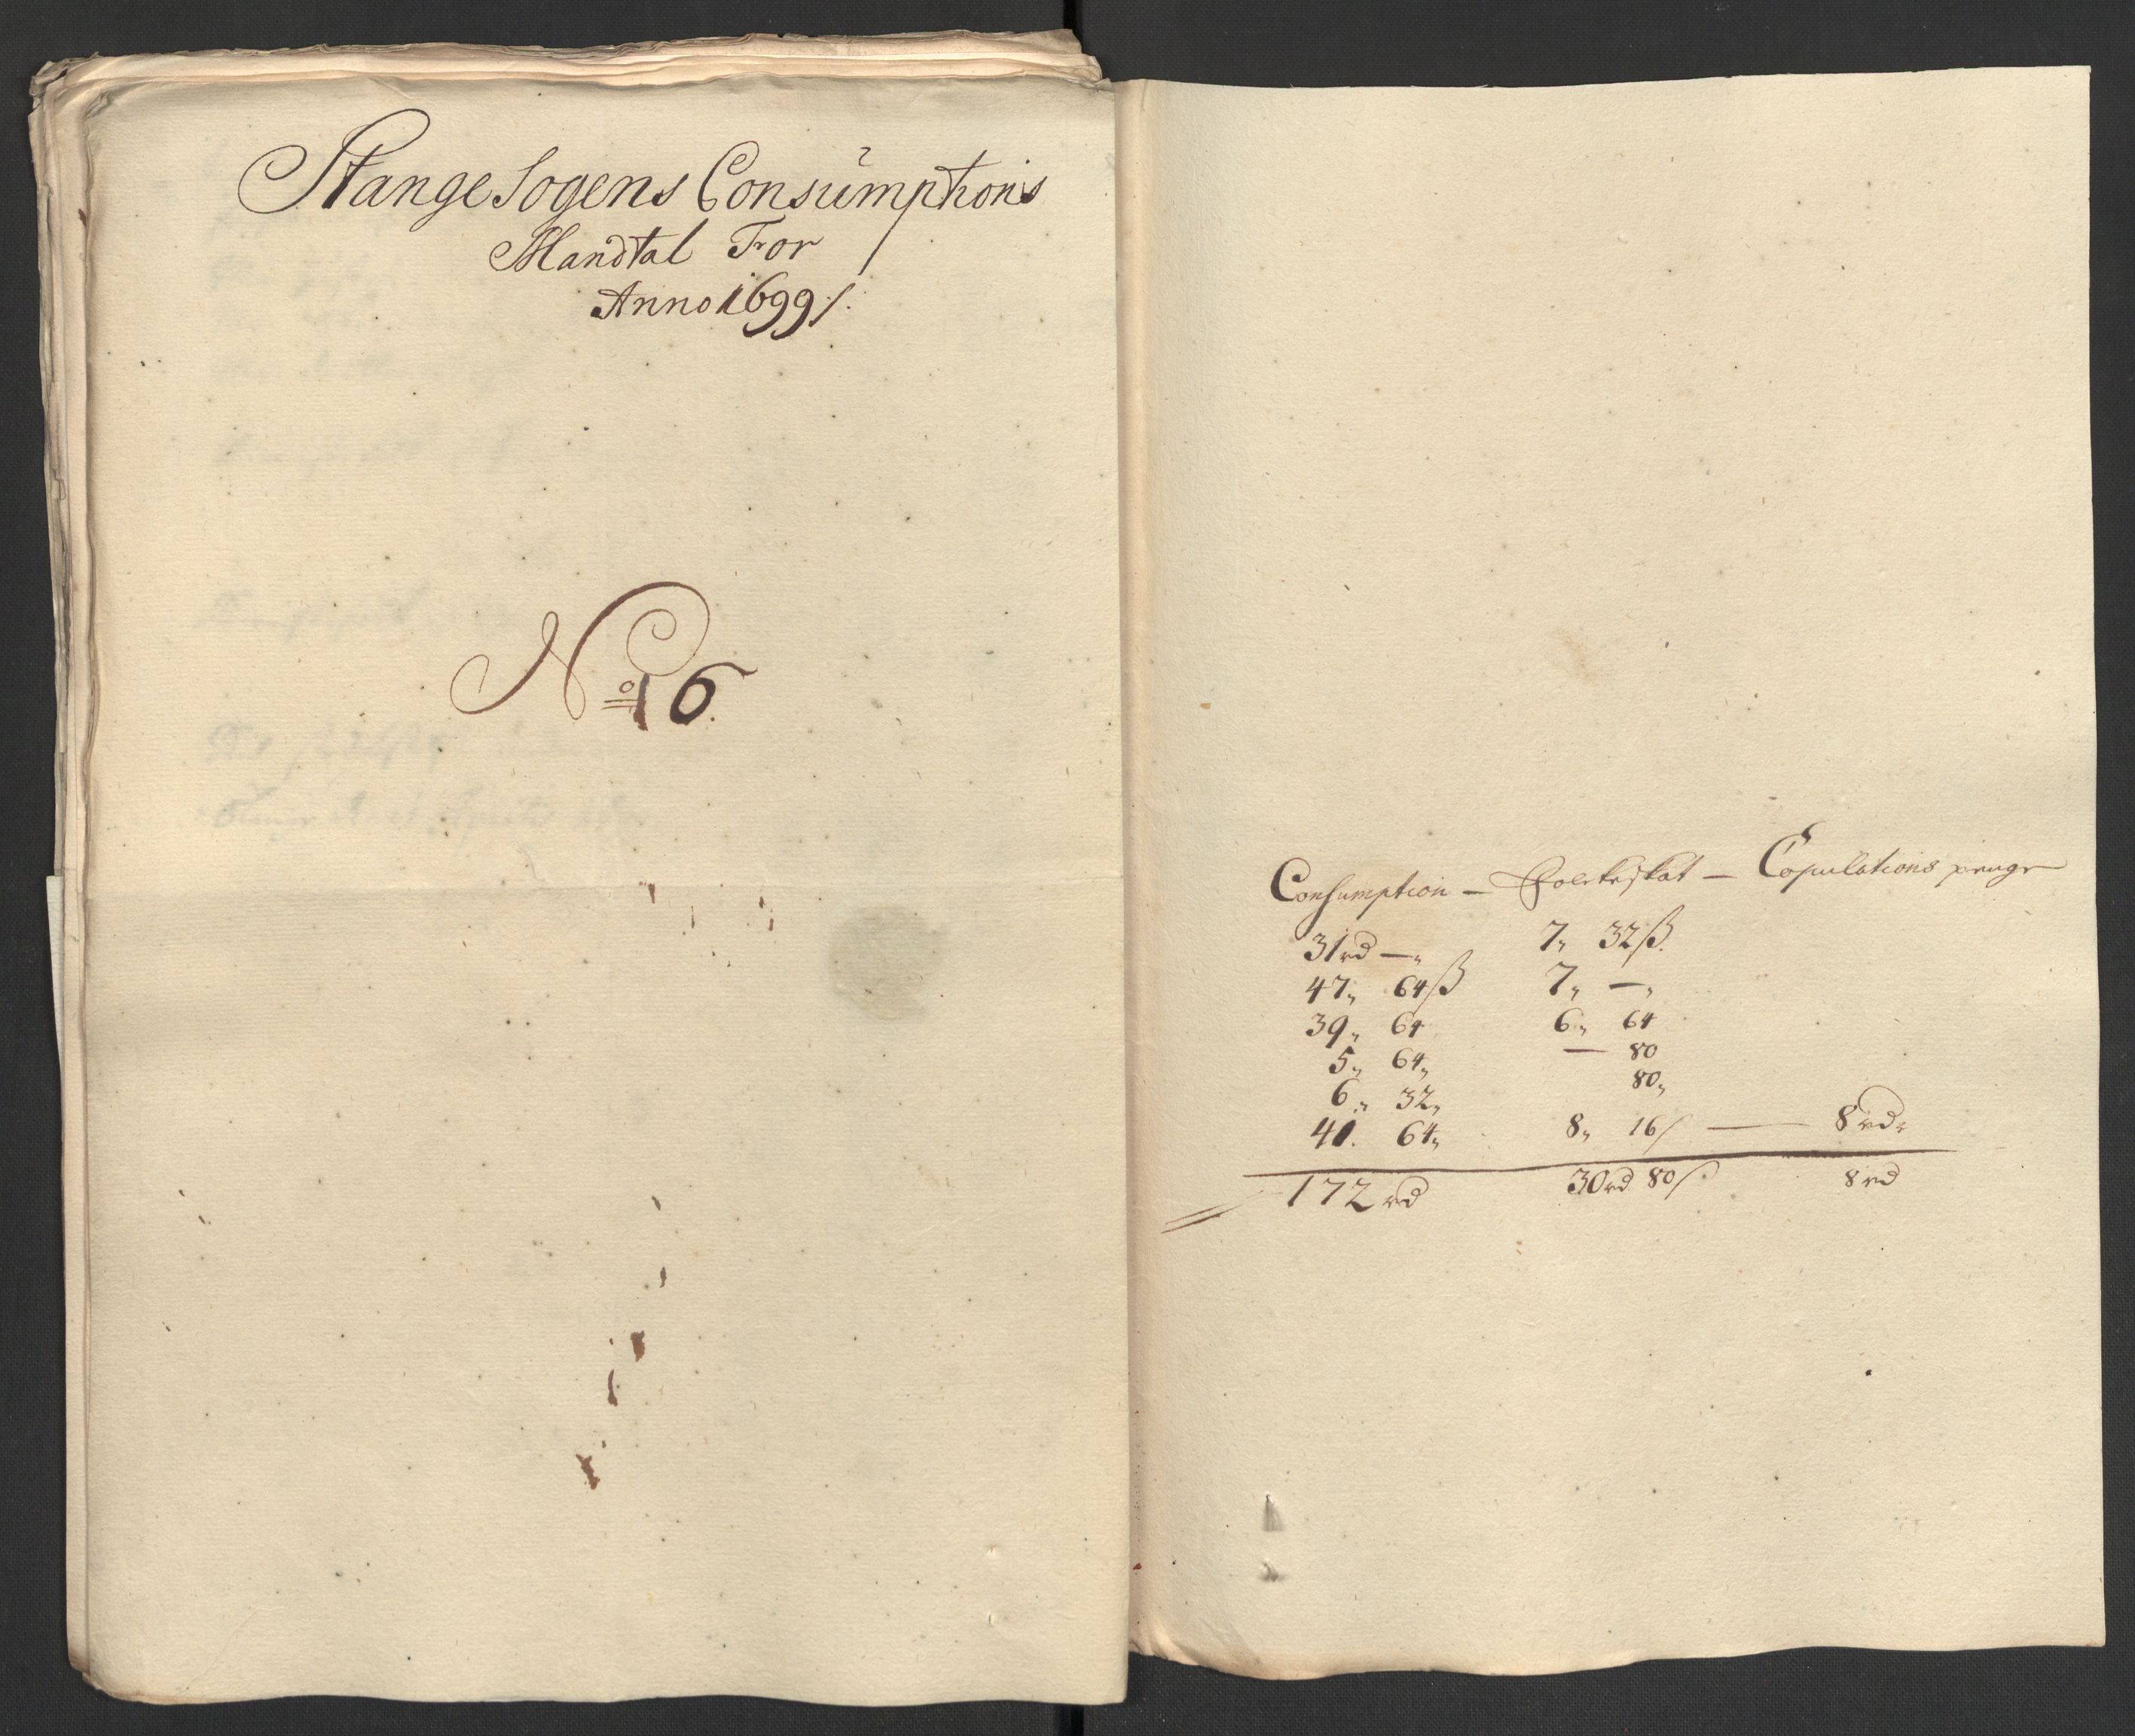 Stange Sogens Consumptions
Mandtal For
Anno 1699 /.
No 16.
Consumption — Folckeskat — Copulations penge
31 rd —„ 7„ 32 ß.
47„ 64 ß 7„ —„
39„ 64 6„ 64
5„ 64„ — 80
6„ 32„ 80„
41. 64„ 8„ 16 ß — 8 rd„
172 rd 30 rd 80 ß 8 rd